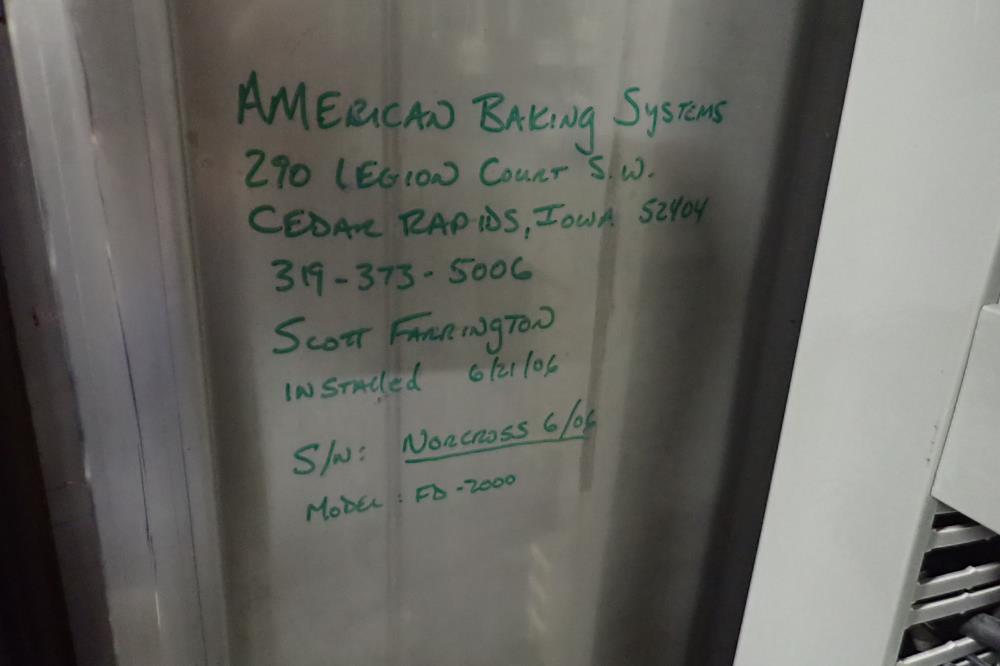 AMERICAN BAKING SYSTEMS
290 LEGION COURT S.W.
CEDAR RAPIDS, IOWA 52404
319-373-5006
SCOTT FARRINGTON
INSTALLED 6/21/06
S/N: NORCROSS 6/06
MODEL: FD-2000